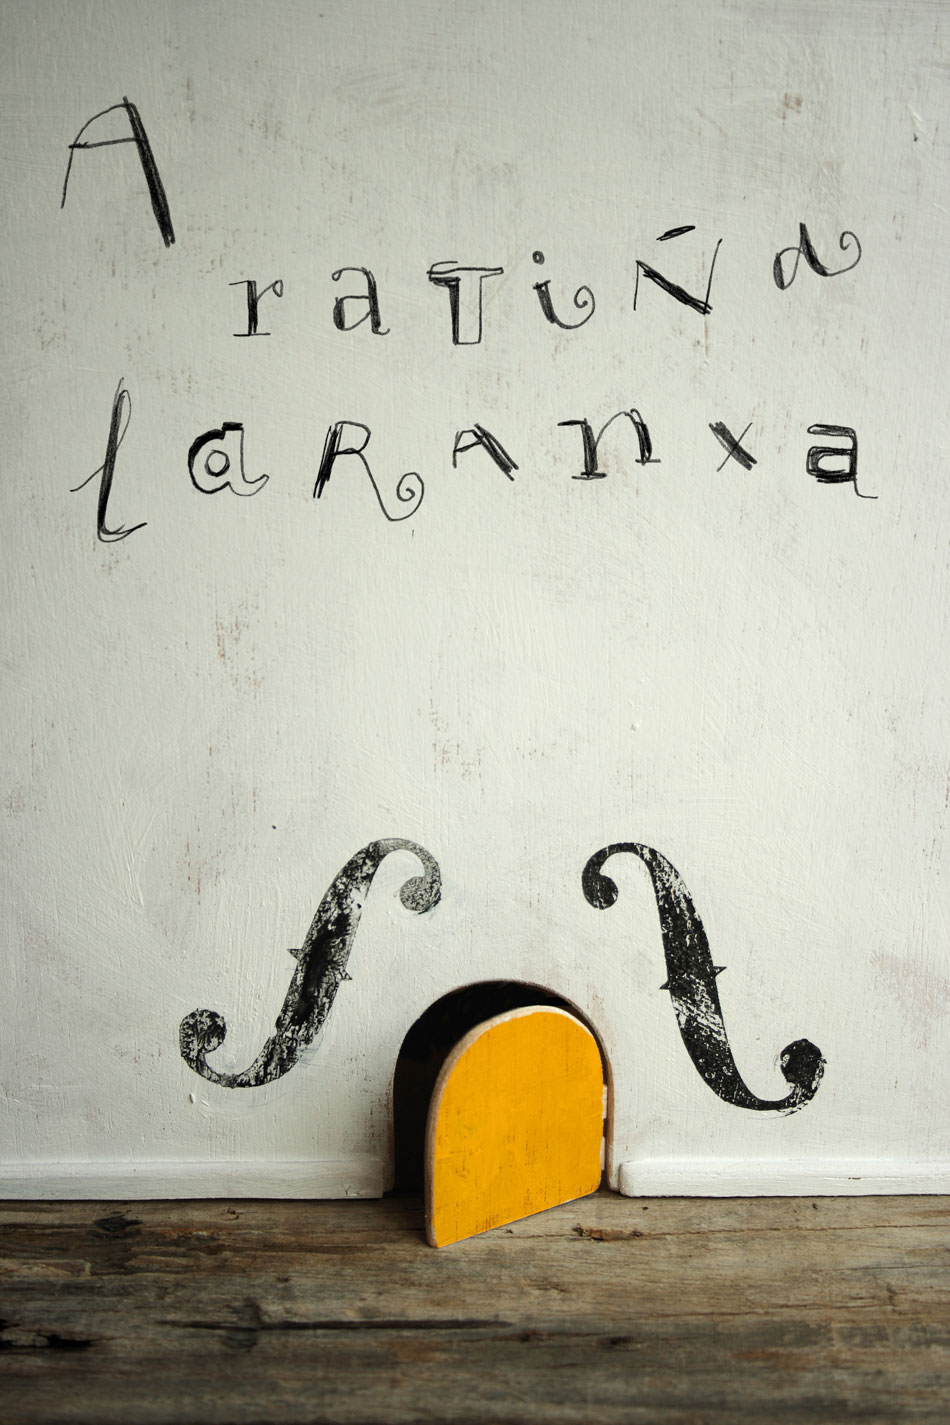 A
raTiÑa
laRAnxa